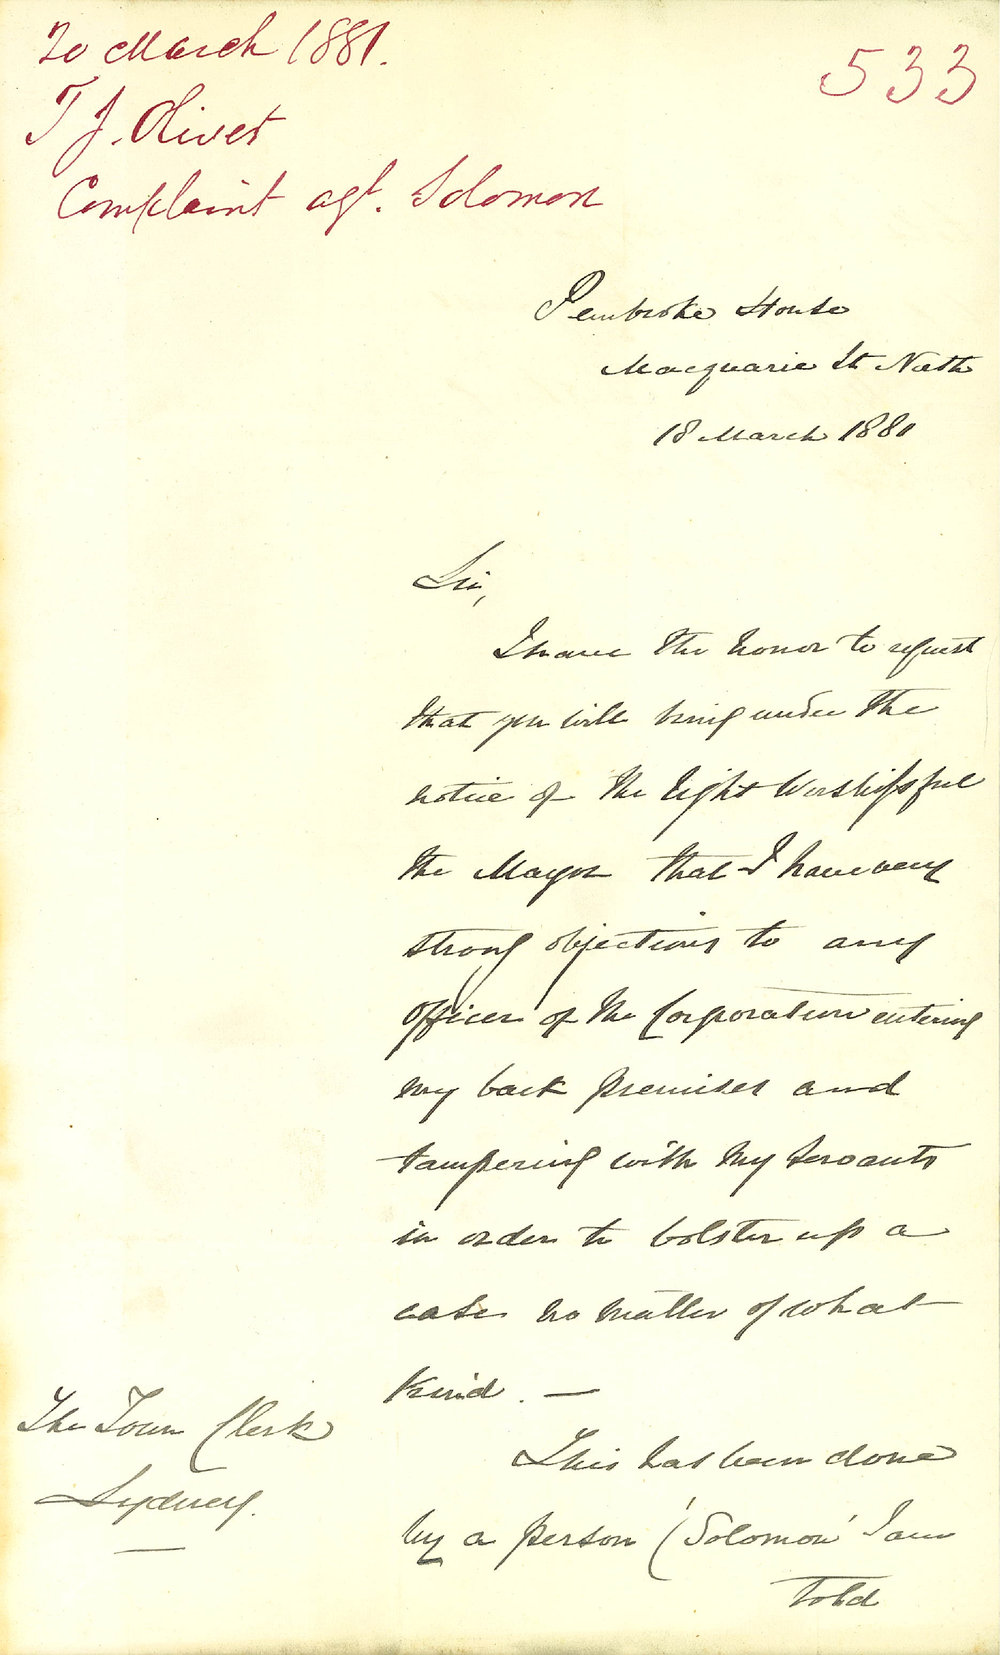 20 March 1881.
533
T J. Oliver
Complaint agt. Solomon
Pembroke House
Macquarie St North
18 March 1881
Sir,
I have the honor to request
that you will bring under the
notice of the Right Worshipful
the Mayor that I have very
strong objections to any
officer of the Corporation entering
my back premises and
tampering with my servants
in order to bolster up a
case no matter of what
kind. —
The Town Clerk
Sydney.
This has been done
by a person (Solomon' I am
told